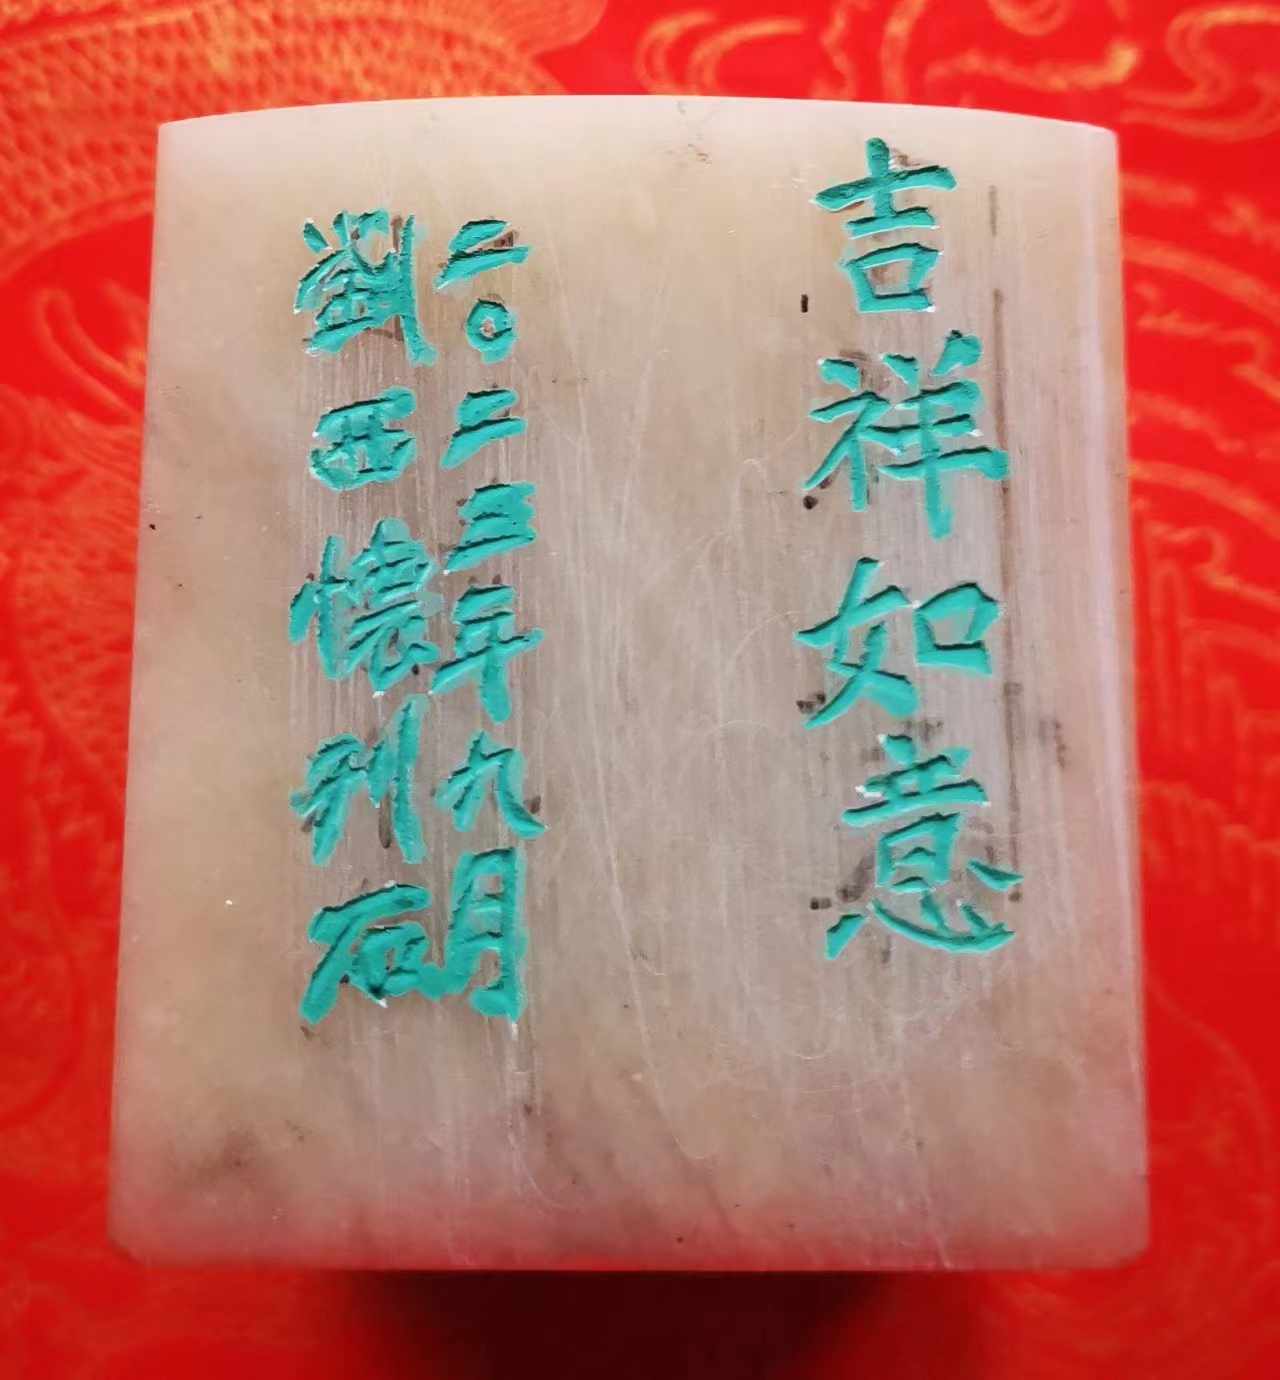 吉祥如意
二〇二三年九月
劉西懷刊石